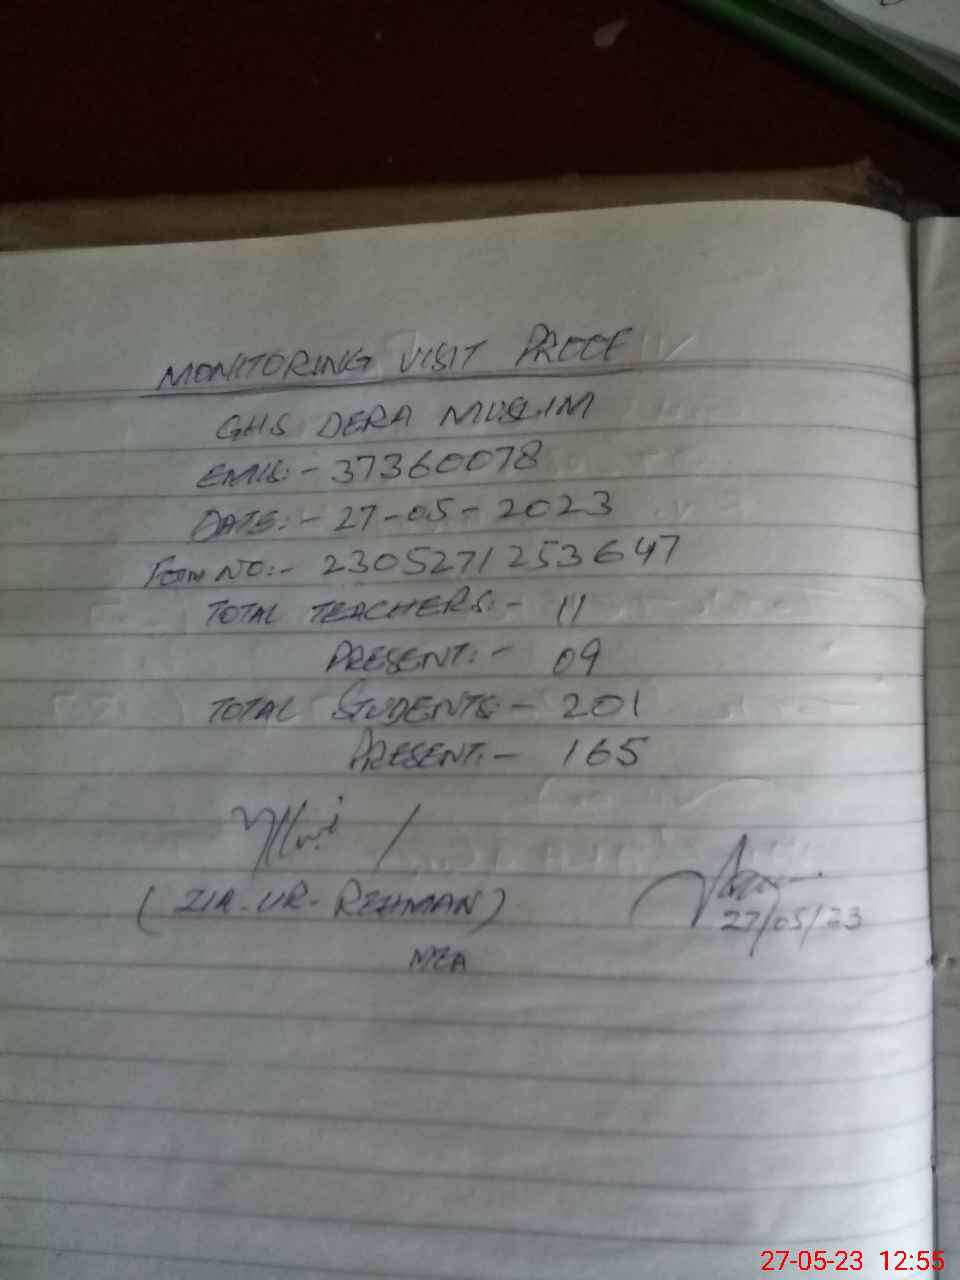 MONITORING VISIT PROOF
GHS DERA MUSLIM
EMIS:- 37360078
DATE:- 27-05-2023
Form NO:- 23052712253647
TOTAL TEACHERS:- 11
PRESENT:- 09
TOTAL STUDENTS:- 201
PRESENT:- 165
(ZIA-UR-REHMAN)
27/05/23
MEA
27-05-23 12:55